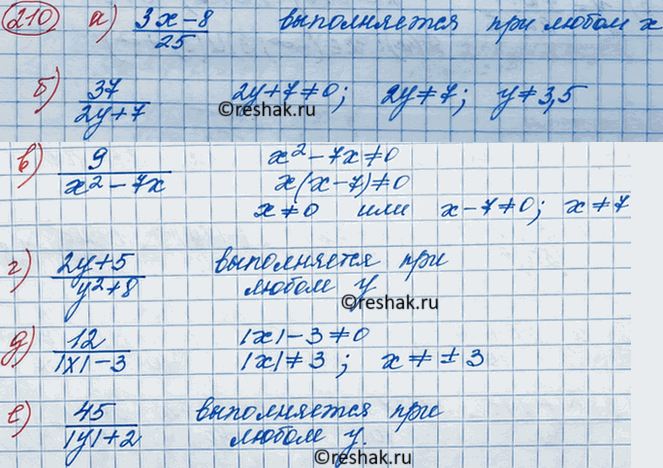 210 а) (3x-8)/25 выполняется при любом x
б) 37/(2y+7) 2y+7≠0; 2y≠7; y≠3,5
©reshak.ru
в) 9/(x²-7x) x²-7x≠0
x(x-7)≠0
x≠0 или x-7≠0; x≠7
г) (2y+5)/(y²+8) выполняется при
любом y
©reshak.ru
д) 12/(|x|-3) |x|-3≠0
|x|≠3; x≠±3
е) 45/(|y|+2) выполняется при
любом y.
©reshak.ru